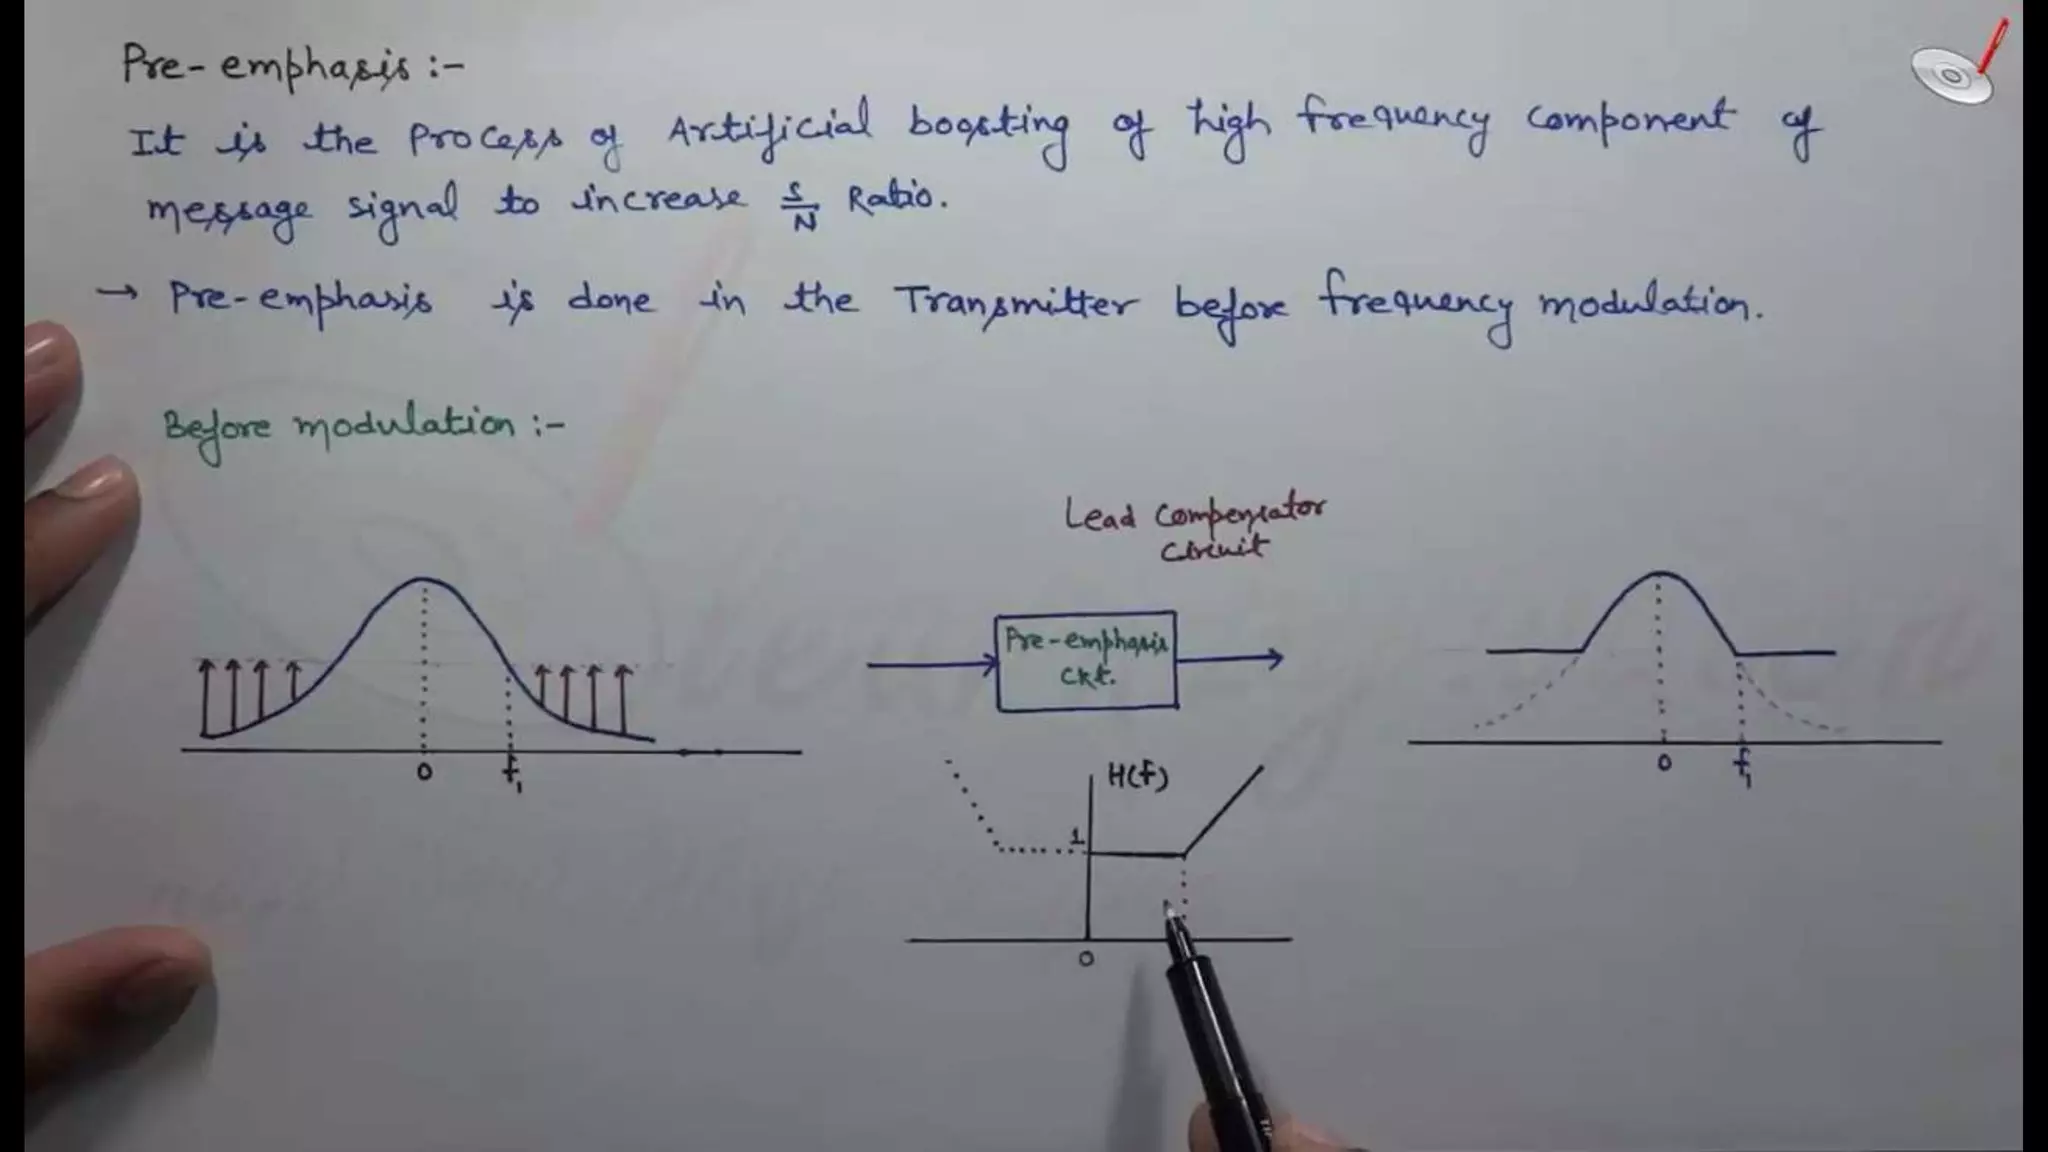 Pre-emphasis :-
It is the Process of Artificial boosting of high frequency component of
message signal to increase S/N Ratio.
→ Pre-emphasis is done in the Transmitter before frequency modulation.
Before modulation :-
Lead Compensator
Circuit
Pre-emphasis
Ckt.
0 f1
H(f)
1
0
0 f1